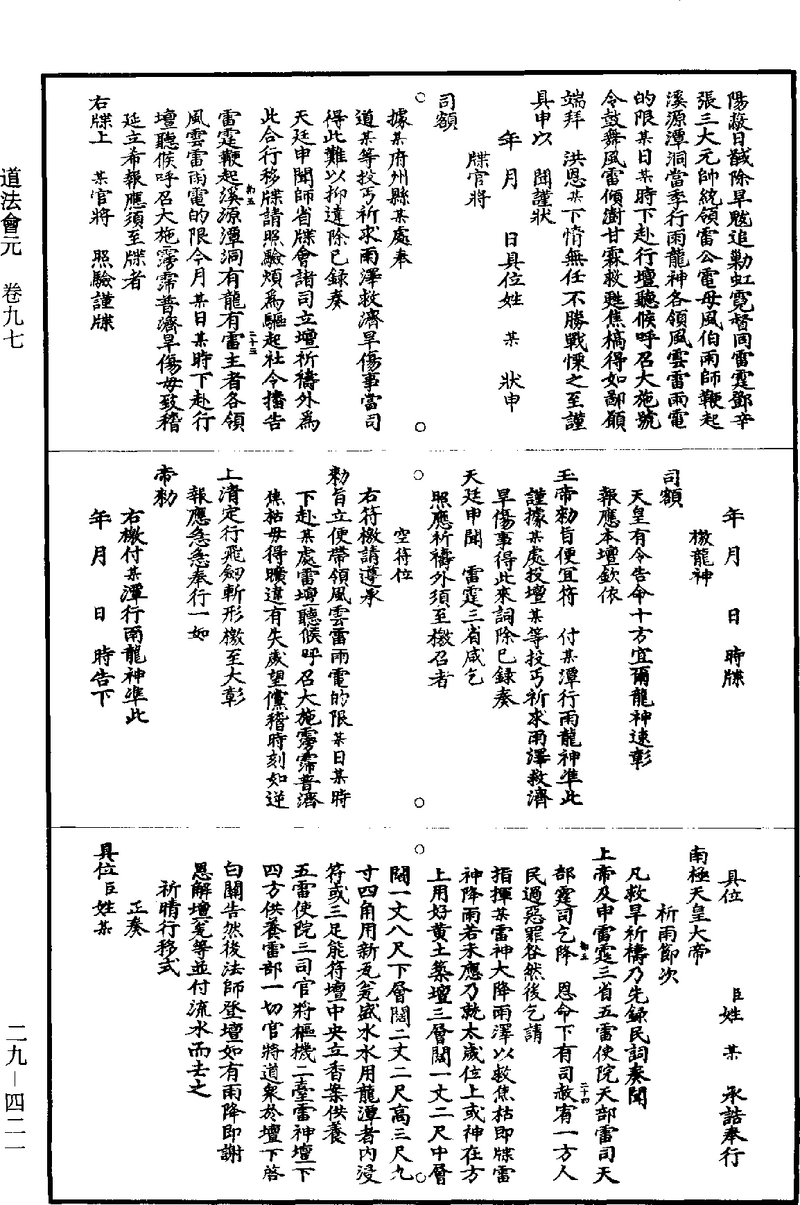 陽敕日馘除旱魃追勦虹霓督同雷霆鄧辛
張三大元帥統領雷公電母風伯雨師鞭起
溪源潭洞當季行雨龍神各領風雲雷雨電
的限某日某時下赴行壇聽候呼召大施號
令鼓舞風雷傾澍甘霖救甦焦槁得如鄙願
端拜　洪恩某下情無任不勝戰慄之至謹
具申以　聞謹狀
年　月　　日具位姓　某　狀申
牒官將
司額
據某府州縣某處奉
道某等投丐祈求雨澤救濟旱傷事當司
得此難以抑違除已錄奏
天廷申聞師省牒會諸司立壇祈禱外為
此合行移牒請照驗煩為驅起社令播告
雷霆鞭起溪源潭洞有龍有雷主者各領
風雲雷雨電的限今月某日某時下赴行
壇聽候呼召大施霶霈普濟旱傷毋致稽
延立希報應須至牒者
右牒上　某官將　照驗謹牒
年　月　　日　時牒
檄龍神
司額
天皇有令告命十方宜爾龍神速彰
報應本壇欽依
玉帝勅旨便宜符　付某潭行雨龍神準此
謹據某處投壇某等投丐祈求雨澤救濟
旱傷事得此來詞除已錄奏
天廷申聞　雷霆三省咸乞
照應祈禱外須至檄召者
空符位
右符檄請遵承
勅旨立便帶領風雲雷雨電的限某日某時
下赴某處雷壇聽候呼召大施霶霈普濟
焦枯毋得曠違有失歲望儻稽時刻如逆
上清定行飛劒斬形檄至大彰
報應急急奉行一如
帝勅
右檄付某潭行雨龍神準此
年　月　　日　時告下
具位　　　　臣姓　某　承誥奉行
南極天皇大帝
祈雨節次
凡救旱祈禱乃先錄民詞奏聞
上帝及申雷霆三省五雷使院天部雷司天
部霆司乞降　恩命下有司赦宥一方人
民過惡罪咎然後乞請
指揮某雷神大降雨澤以救焦枯即牒雷
神降雨若未應乃就太歲位上或神在方
上用好黃土築壇三層闊一丈二尺中層
闊一丈八尺下層闊二丈二尺高三尺九
寸四角用新瓦瓮盛水水用龍潭者內浸
符或三足能符壇中央立香案供養
五雷使院三司官將樞機二臺雷神壇下
四方供養雷部一切官將道眾於壇下啓
白關告然後法師登壇如有雨降即謝
恩解壇瓮等並付流水而去之
祈晴行移式
正奏
具位臣姓某
道法會元　卷九七
二九－四二一